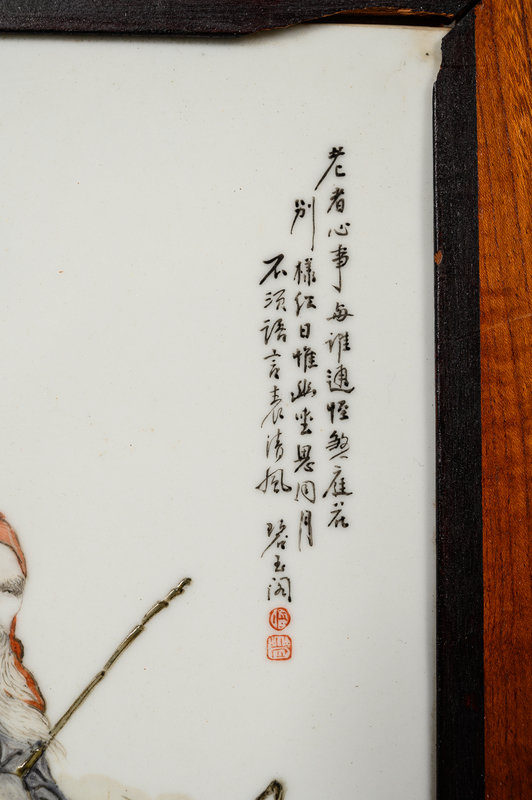 老者心事誰通怪煞庭花
別樣紅日惟幽坐思同月
不須語言表清風 碧玉阁